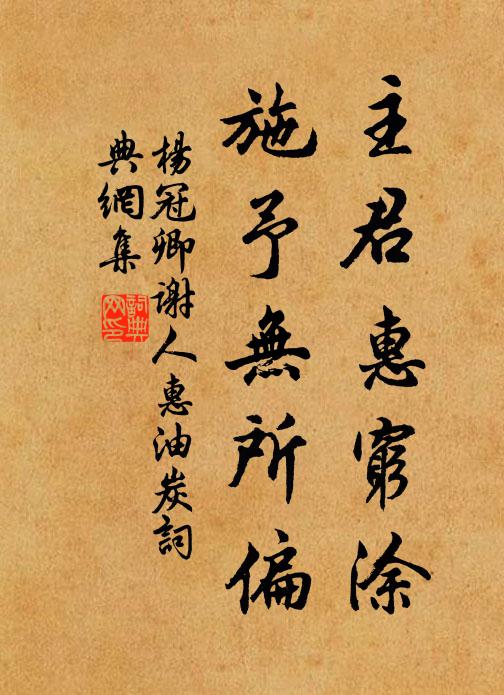 主君惠窮涂
施予無所偏
楊冠卿謝人惠油炭詞
典網集
詞典網印